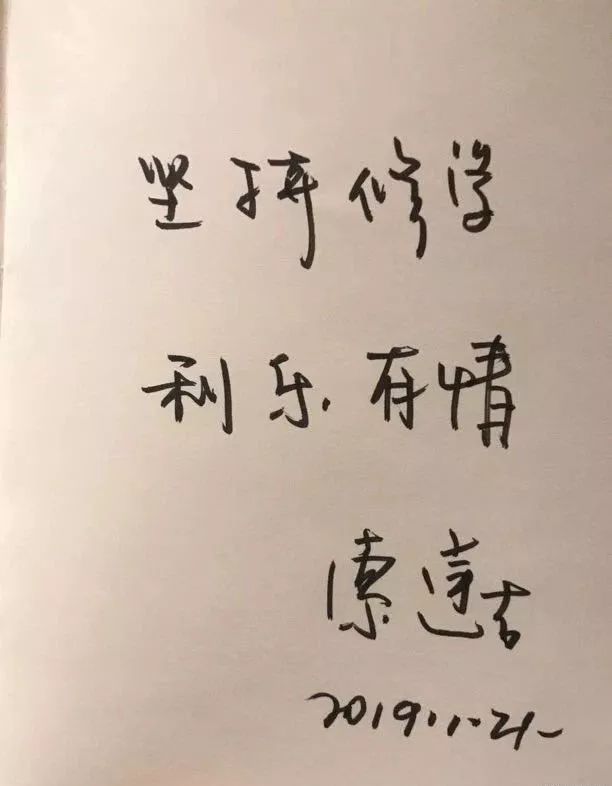 坚持修学
利乐有情
索達吉
2019.1.21